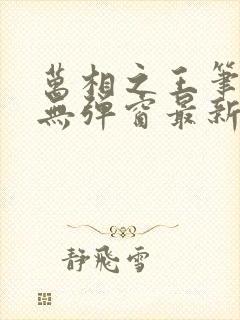 萬相之王筆
無彈窗最新
静飛雪